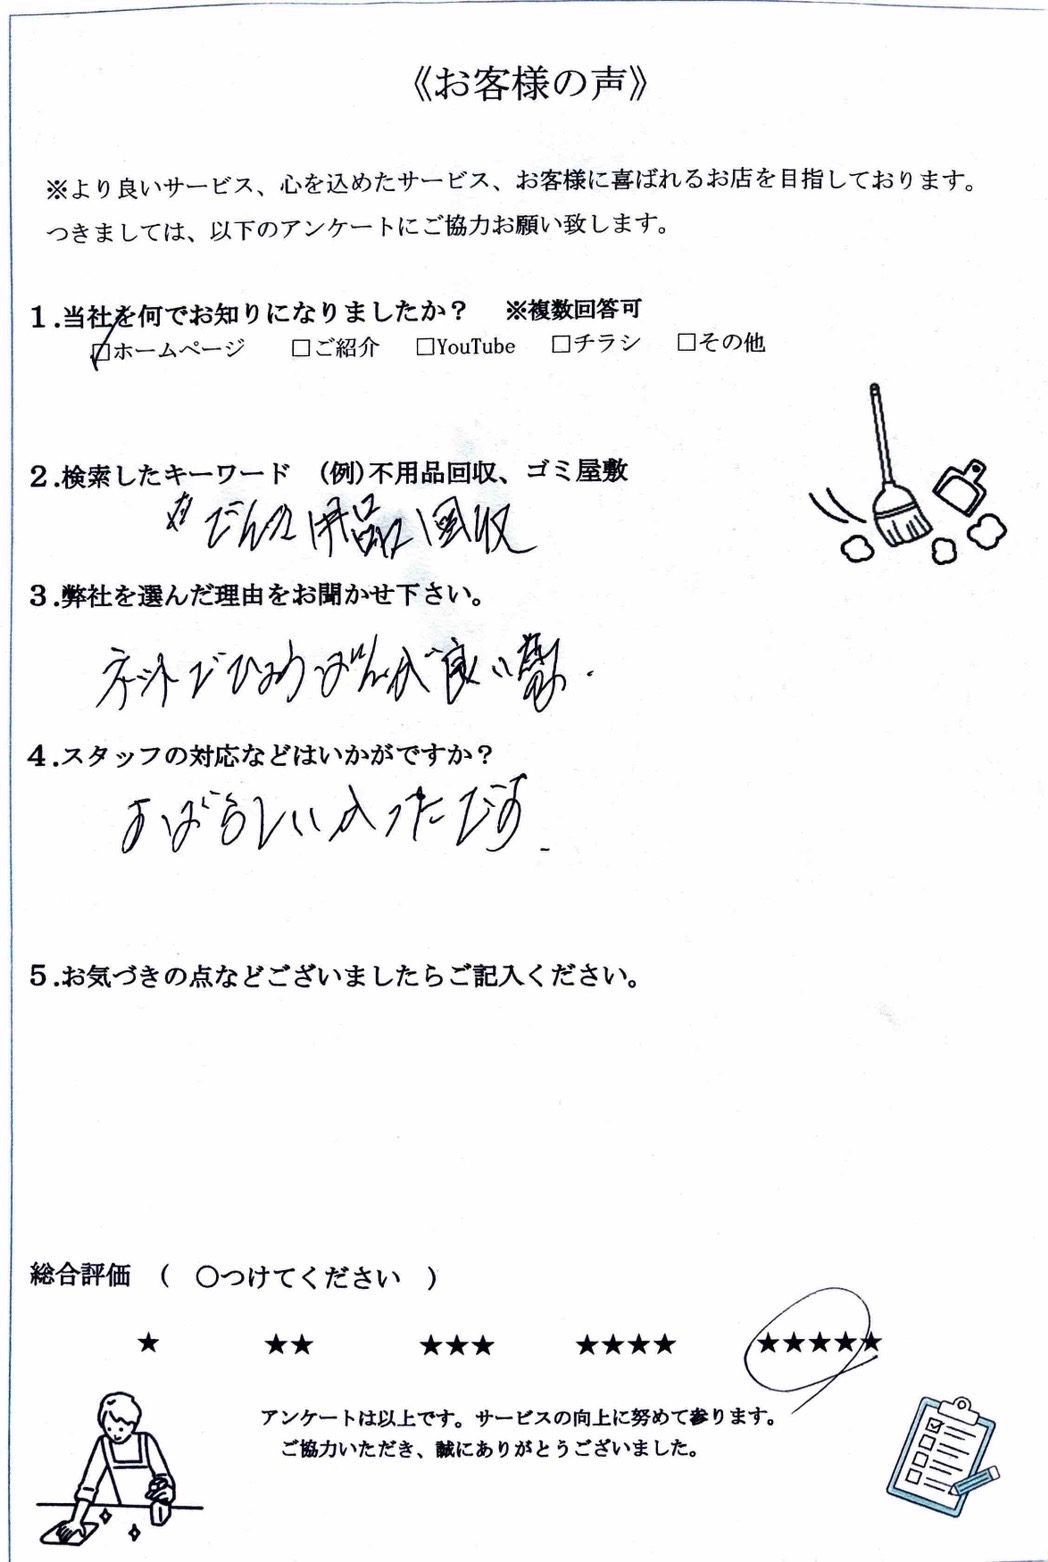 《お客様の声》
※より良いサービス、心を込めたサービス、お客様に喜ばれるお店を目指しております。
つきましては、以下のアンケートにご協力お願い致します。
1.当社を何でお知りになりましたか？ ※複数回答可
☑ホームページ □ご紹介 □YouTube □チラシ □その他
2.検索したキーワード (例)不用品回収、ゴミ屋敷
用品 回収
3.弊社を選んだ理由をお聞かせ下さい。
ネットでひょうばんが良い
4.スタッフの対応などはいかがですか？
すばらしい です
5.お気づきの点などございましたらご記入ください。
総合評価 ( ○つけてください )
★ ★★ ★★★ ★★★★ ★★★★★
アンケートは以上です。サービスの向上に努めて参ります。
ご協力いただき、誠にありがとうございました。